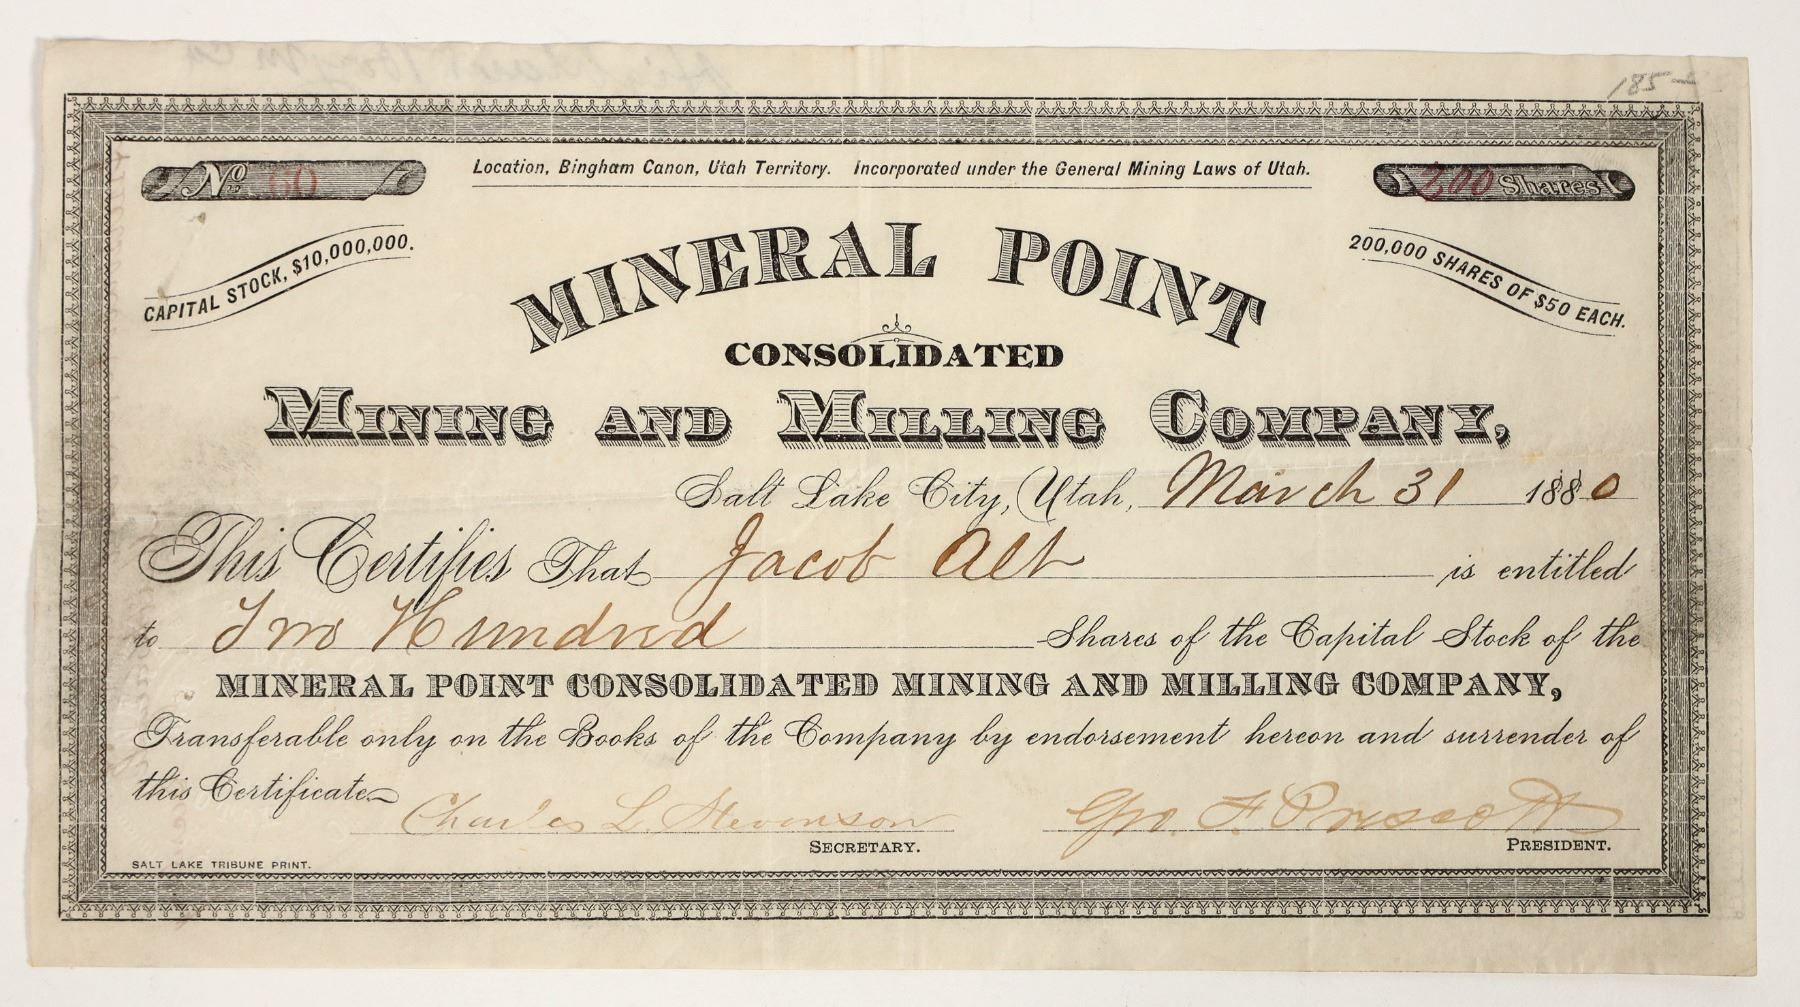 185-
No 60
Location, Bingham Canon, Utah Territory. Incorporated under the General Mining Laws of Utah.
200 Shares
CAPITAL STOCK, $10,000,000.
200,000 SHARES OF $50 EACH.
MINERAL POINT
CONSOLIDATED
MINING AND MILLING COMPANY,
Salt Lake City, Utah, March 31 1880
This Certifies That Jacob Alt is entitled
to Two Hundred Shares of the Capital Stock of the
MINERAL POINT CONSOLIDATED MINING AND MILLING COMPANY,
Transferable only on the Books of the Company by endorsement hereon and surrender of
this Certificate
Charles L. Stevenson
SECRETARY.
Geo. F. Prescott
PRESIDENT.
SALT LAKE TRIBUNE PRINT.